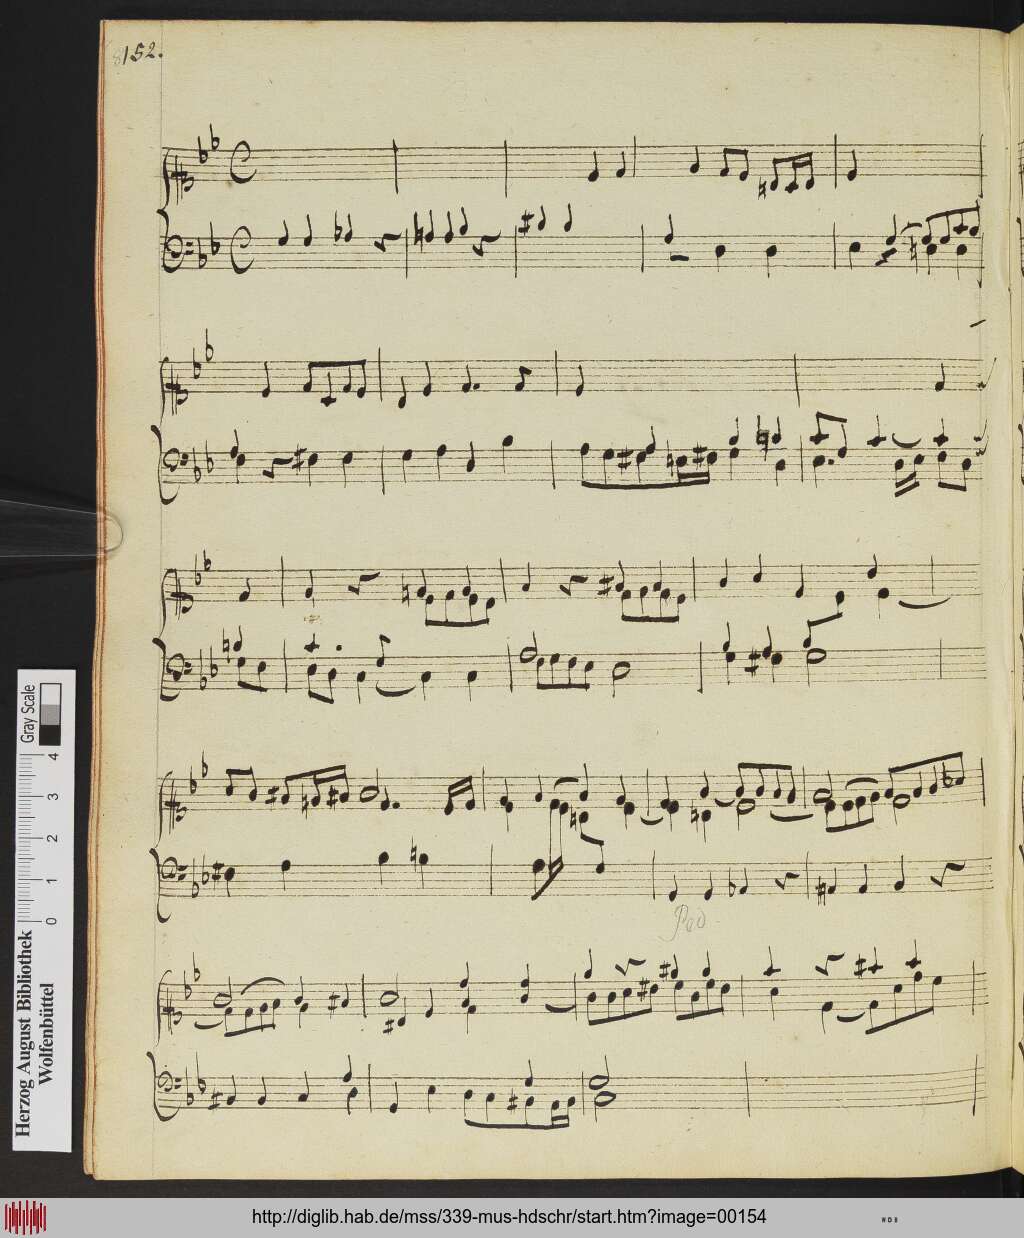 152.
Ped
Gray Scale
4
3
2
1
0
Herzog August Bibliothek
Wolfenbüttel
http://diglib.hab.de/mss/339-mus-hdschr/start.htm?image=00154